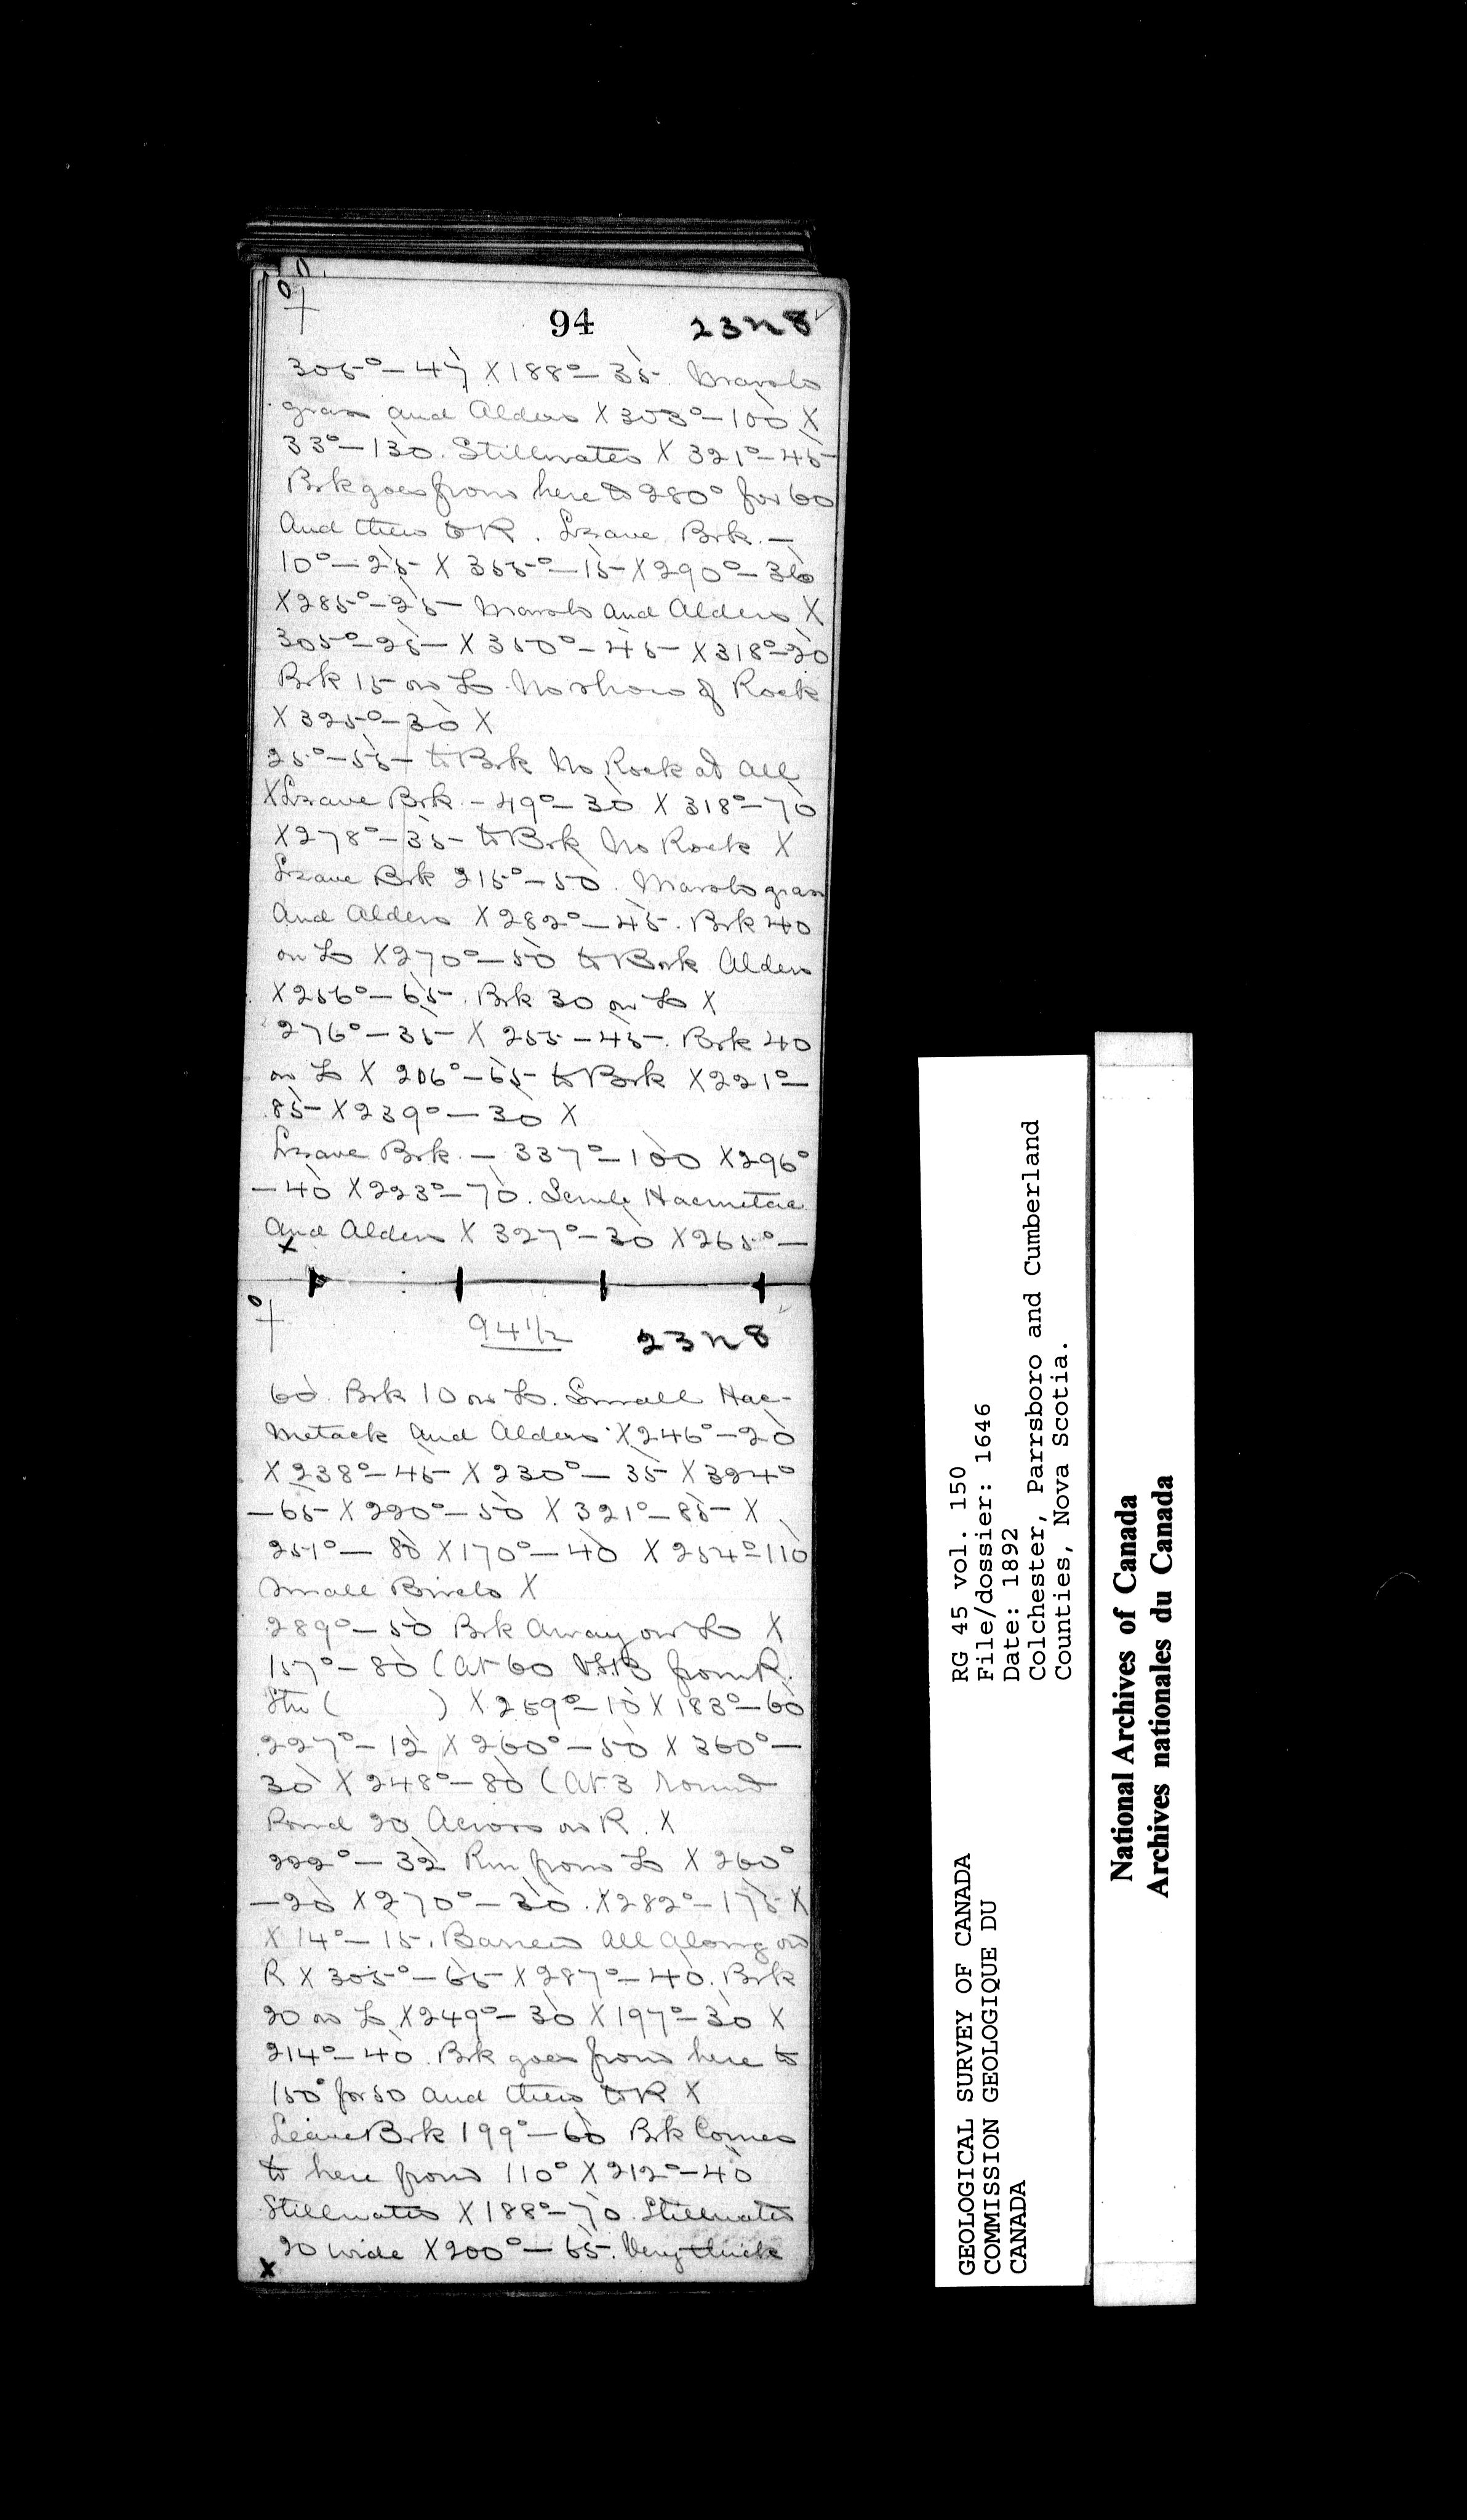 94 23N8
305°—47 X 188°—35. Marsh
grass and Alders X 303°—100 X
33°—130. Stillwater X 321°—45
Brk goes from here to 280° for 60
And then to R. Leave Brk.—
10°—25 X 355°—15 X 290°—36
X 285°—25 Marsh and Alders X
305°—25 X 350°—45 X 318°—20
Brk 15 on L. No show of Rock
X 325°—30 X
25°—55 to Brk No Rock at All
X Leave Brk.—49°—30 X 318°—70
X 278°—35 to Brk No Rock X
Leave Brk 215°—50. Marsh grass
And Alders X 282°—45. Brk 40
on L X 270°—50 to Brk Alders
X 256°—65. Brk 30 on L X
276°—35 X 255—45. Brk 40
on L X 206°—65 to Brk X 221°—
85 X 239°—30 X
Leave Brk.—337°—100 X 296°
—40 X 223°—70. Hacmetac
And Alders X 327°—30 X 265°—
X
94 1/2 23N8
60. Brk 10 on L. Small Hac-
Metack And Alders X 246°—20
X 238°—45 X 230°—35 X 324°
—65 X 220°—50 X 321°—85 X
251°—80 X 170°—40 X 254°—110
Small Birch X
289°—50 Brk Away on L X
157°—80 (At 60 from R.
Str ( ) X 259°—10 X 183°—60
227°—12 X 260°—50 X 360°—
30 X 248°—80 (At 3 round
Pond 20 Across on R. X
222°—32 Run from L X 260°
—20 X 270°—30. X 282°—175 X
X 14°—15. Barren All Along on
R X 305°—65 X 287°—40. Brk
20 on L X 249°—30 X 197°—30 X
214°—40. Brk goes from here to
150° for 50 And then to R X
Leave Brk 199°—60 Brk Comes
to here from 110° X 212°—40
Stillwater X 188°—70. Stillwater
20 wide X 200°—65. Very thick
X
GEOLOGICAL SURVEY OF CANADA
COMMISSION GEOLOGIQUE DU
CANADA
RG 45 vol. 150
File/dossier: 1646
Date: 1892
Colchester, Parrsboro and Cumberland
Counties, Nova Scotia.
National Archives of Canada
Archives nationales du Canada